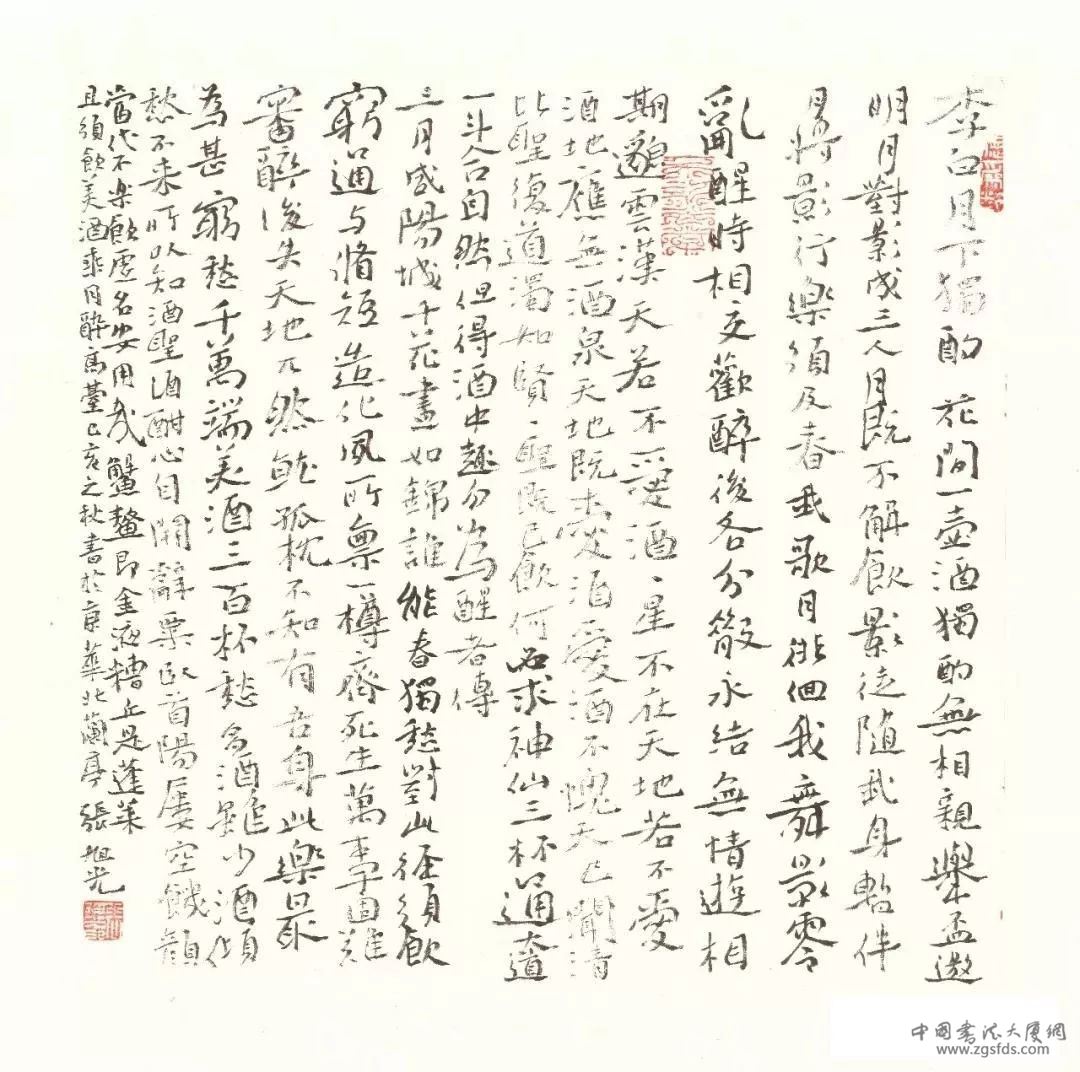 李白月下獨酌 花間一壺酒獨酌無相親舉盃邀
明月對影成三人月既不解飲影徒隨我身暫伴
月將影行樂須及春我歌月徘徊我舞影零
亂醒時相交歡醉後各分散永結無情遊相
期邈雲漢天若不愛酒、星不在天地若不愛
酒地應無酒泉天地既愛酒愛酒不愧天已聞清
比聖復道濁如賢、聖既已飲何必求神仙三杯通大道
一斗合自然但得酒中趣勿為醒者傳
三月咸陽城千花晝如錦誰能春獨愁對此徑須飲
窮通与脩短造化夙所稟一樽齊死生萬事固難
審醉後失天地兀然就孤枕不知有吾身此樂最
為甚窮愁千萬端美酒三百杯愁多酒雖少酒傾
愁不来所以知酒聖酒酣心自開辭粟臥首陽屢空飢顏
當代不樂飲虛名安用哉蟹螯即金液糟丘是蓬萊
且須飲美酒乘月醉高臺己亥之秋書於京華北蘭亭張旭光
中国書法大厦網
www.zgsfds.com